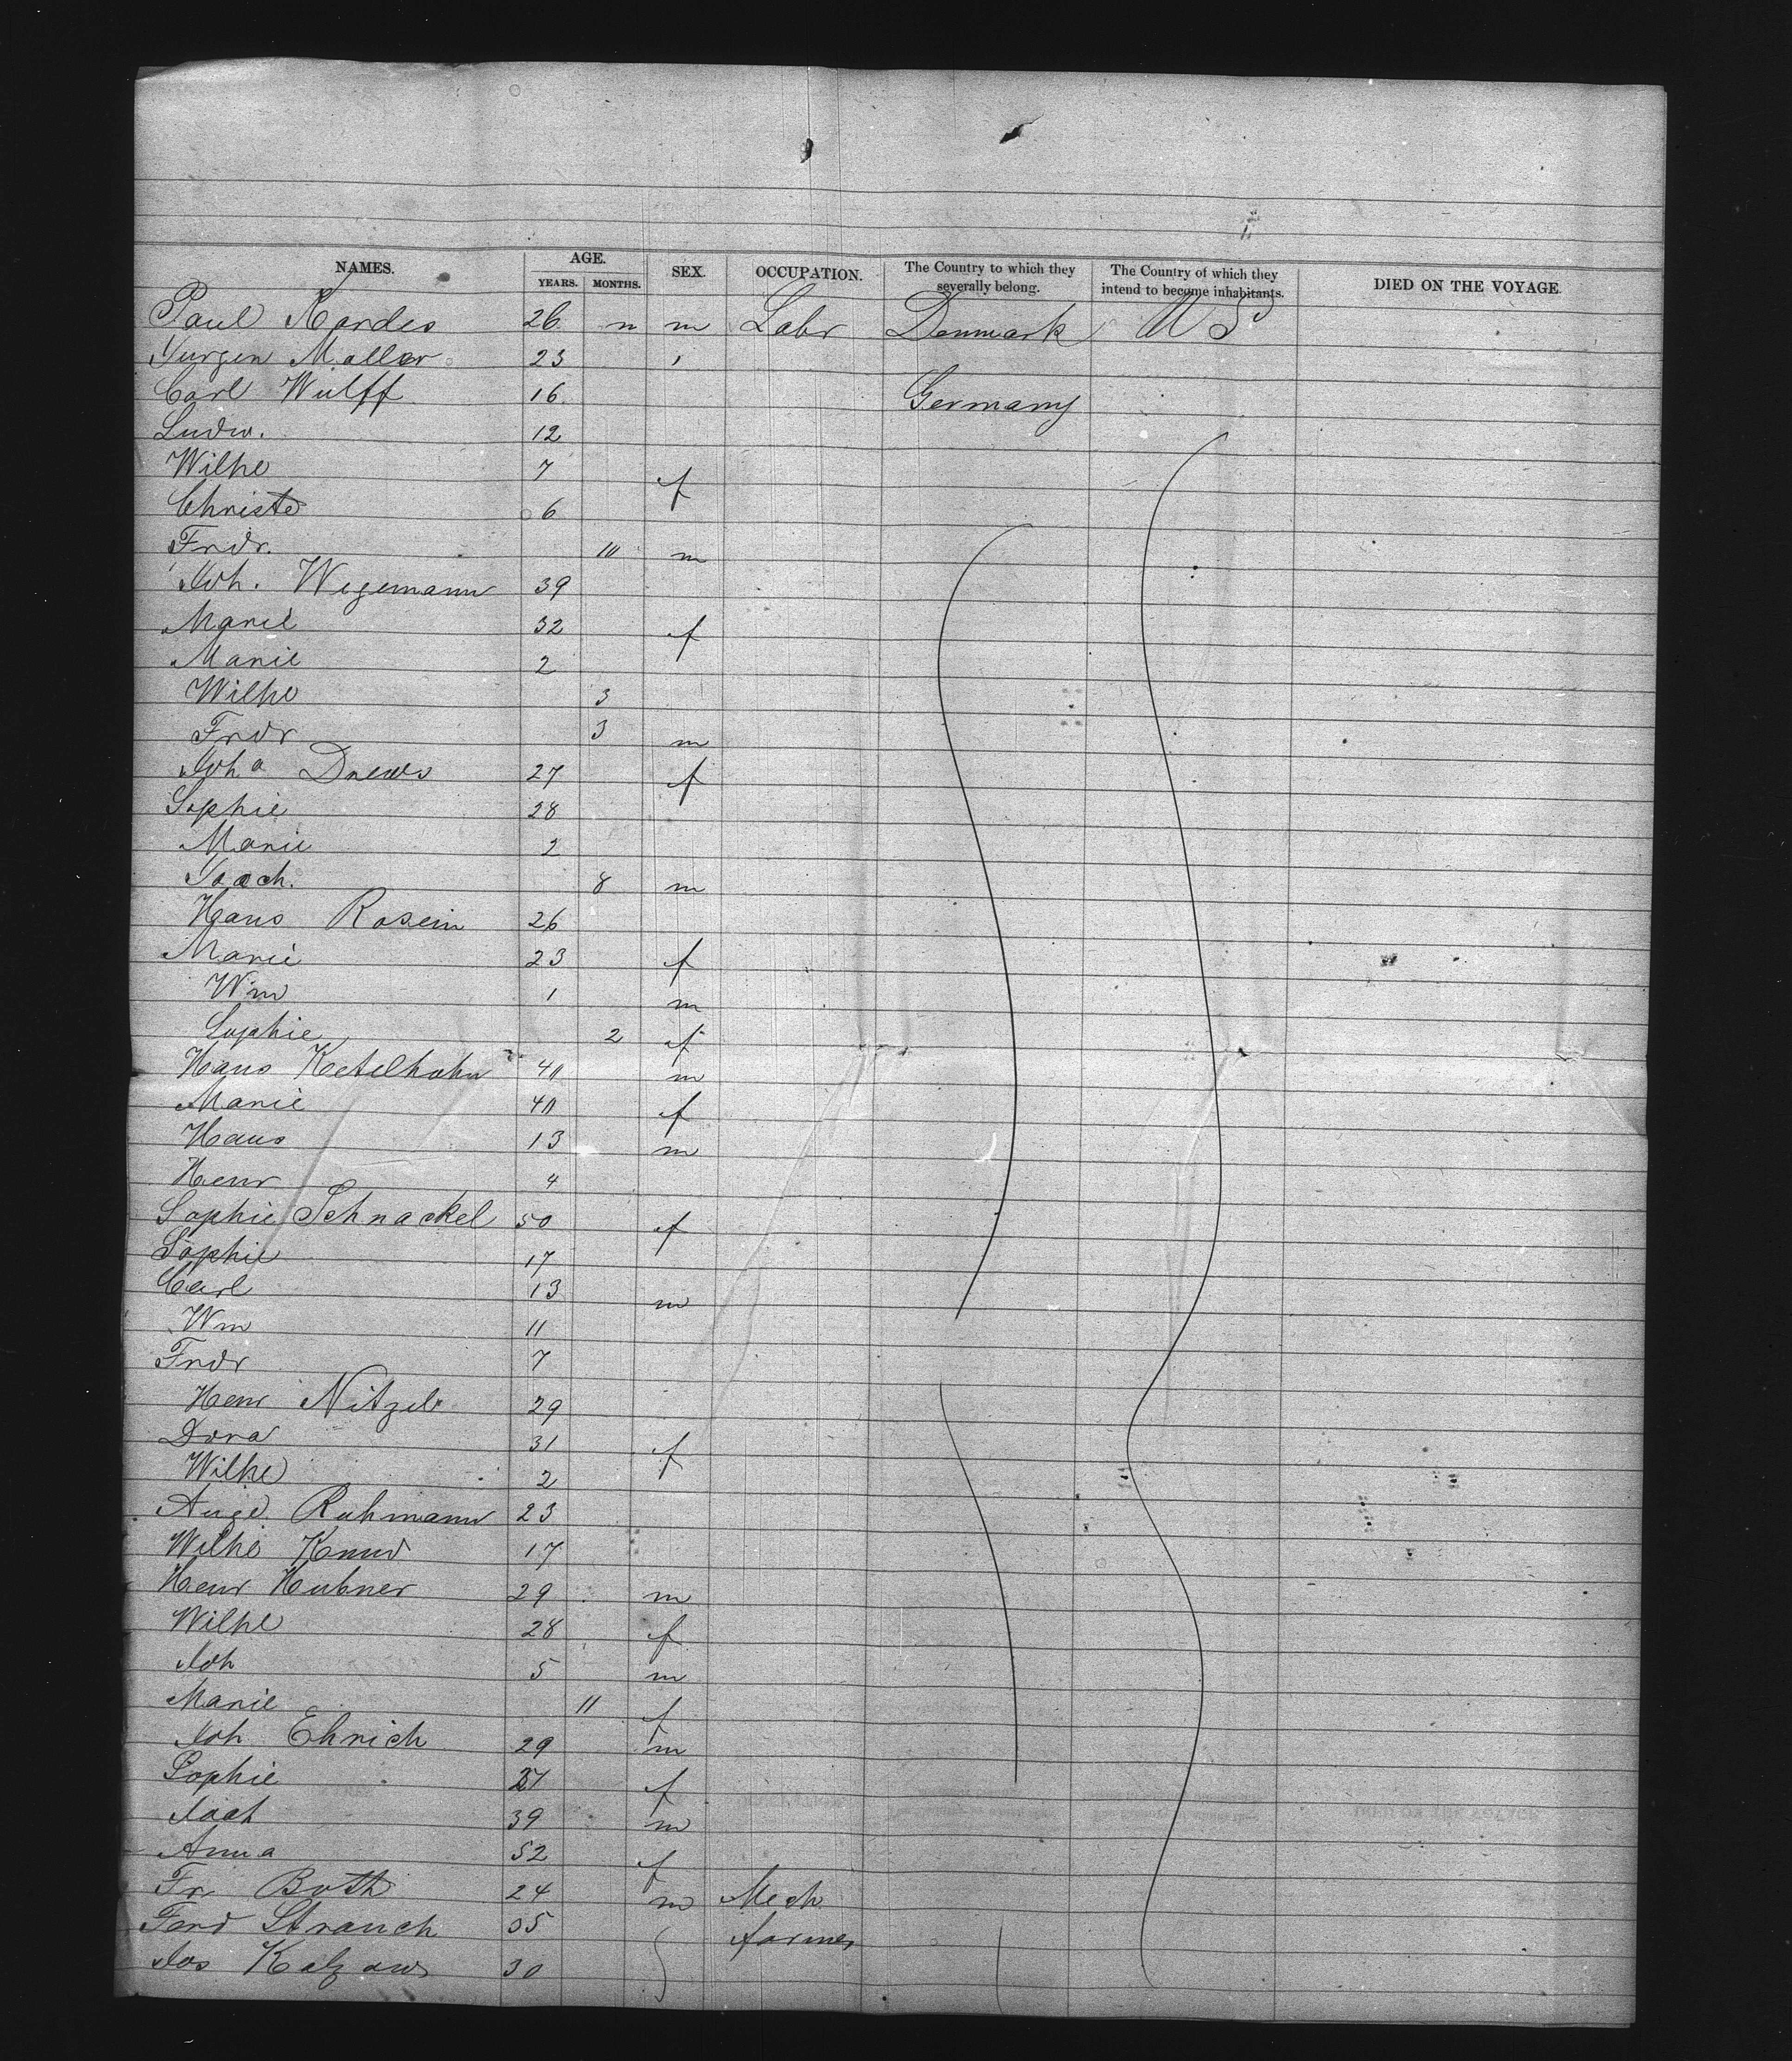 NAMES. AGE. SEX. OCCUPATION. The Country to which they severally belong. The Country of which they intend to become inhabitants. DIED ON THE VOYAGE.
YEARS. MONTHS.
Paul Kardes 26 m Labr Denmark U S
Jurgen Moller 23
Carl Wulff 16 Germany
Ludw. 12
Wilhe 7 f
Christe 6
Fridr. 10 m
Joh. Wegemann 39
Marie 32 f
Marie 2
Wilhe 3
Fridr 3 m
Joha Drews 27 f
Sophie 28
Marie 2
Joach. 8 m
Hans Rosein 26
Marie 23 f
Wm 1 m
Sophie 2 f
Hans Ketelhohn 40 m
Marie 40 f
Hans 13 m
Henr 4
Sophie Schnackel 50 f
Sophie 17
Carl 13 m
Wm 11
Fridr 7
Henr Nitzel 29
Dora 31 f
Wilhe 2
Auge Ruhmann 23
Wilhe 17
Henr Hubner 29 m
Wilhe 28 f
Joh 5 m
Marie 11 f
Joh Ehrich 29 m
Sophie f
Joach 39 m
Anna 52 f
Fr Both 24 m Mech
Ferd Strauch 35 farmer
Jos 30